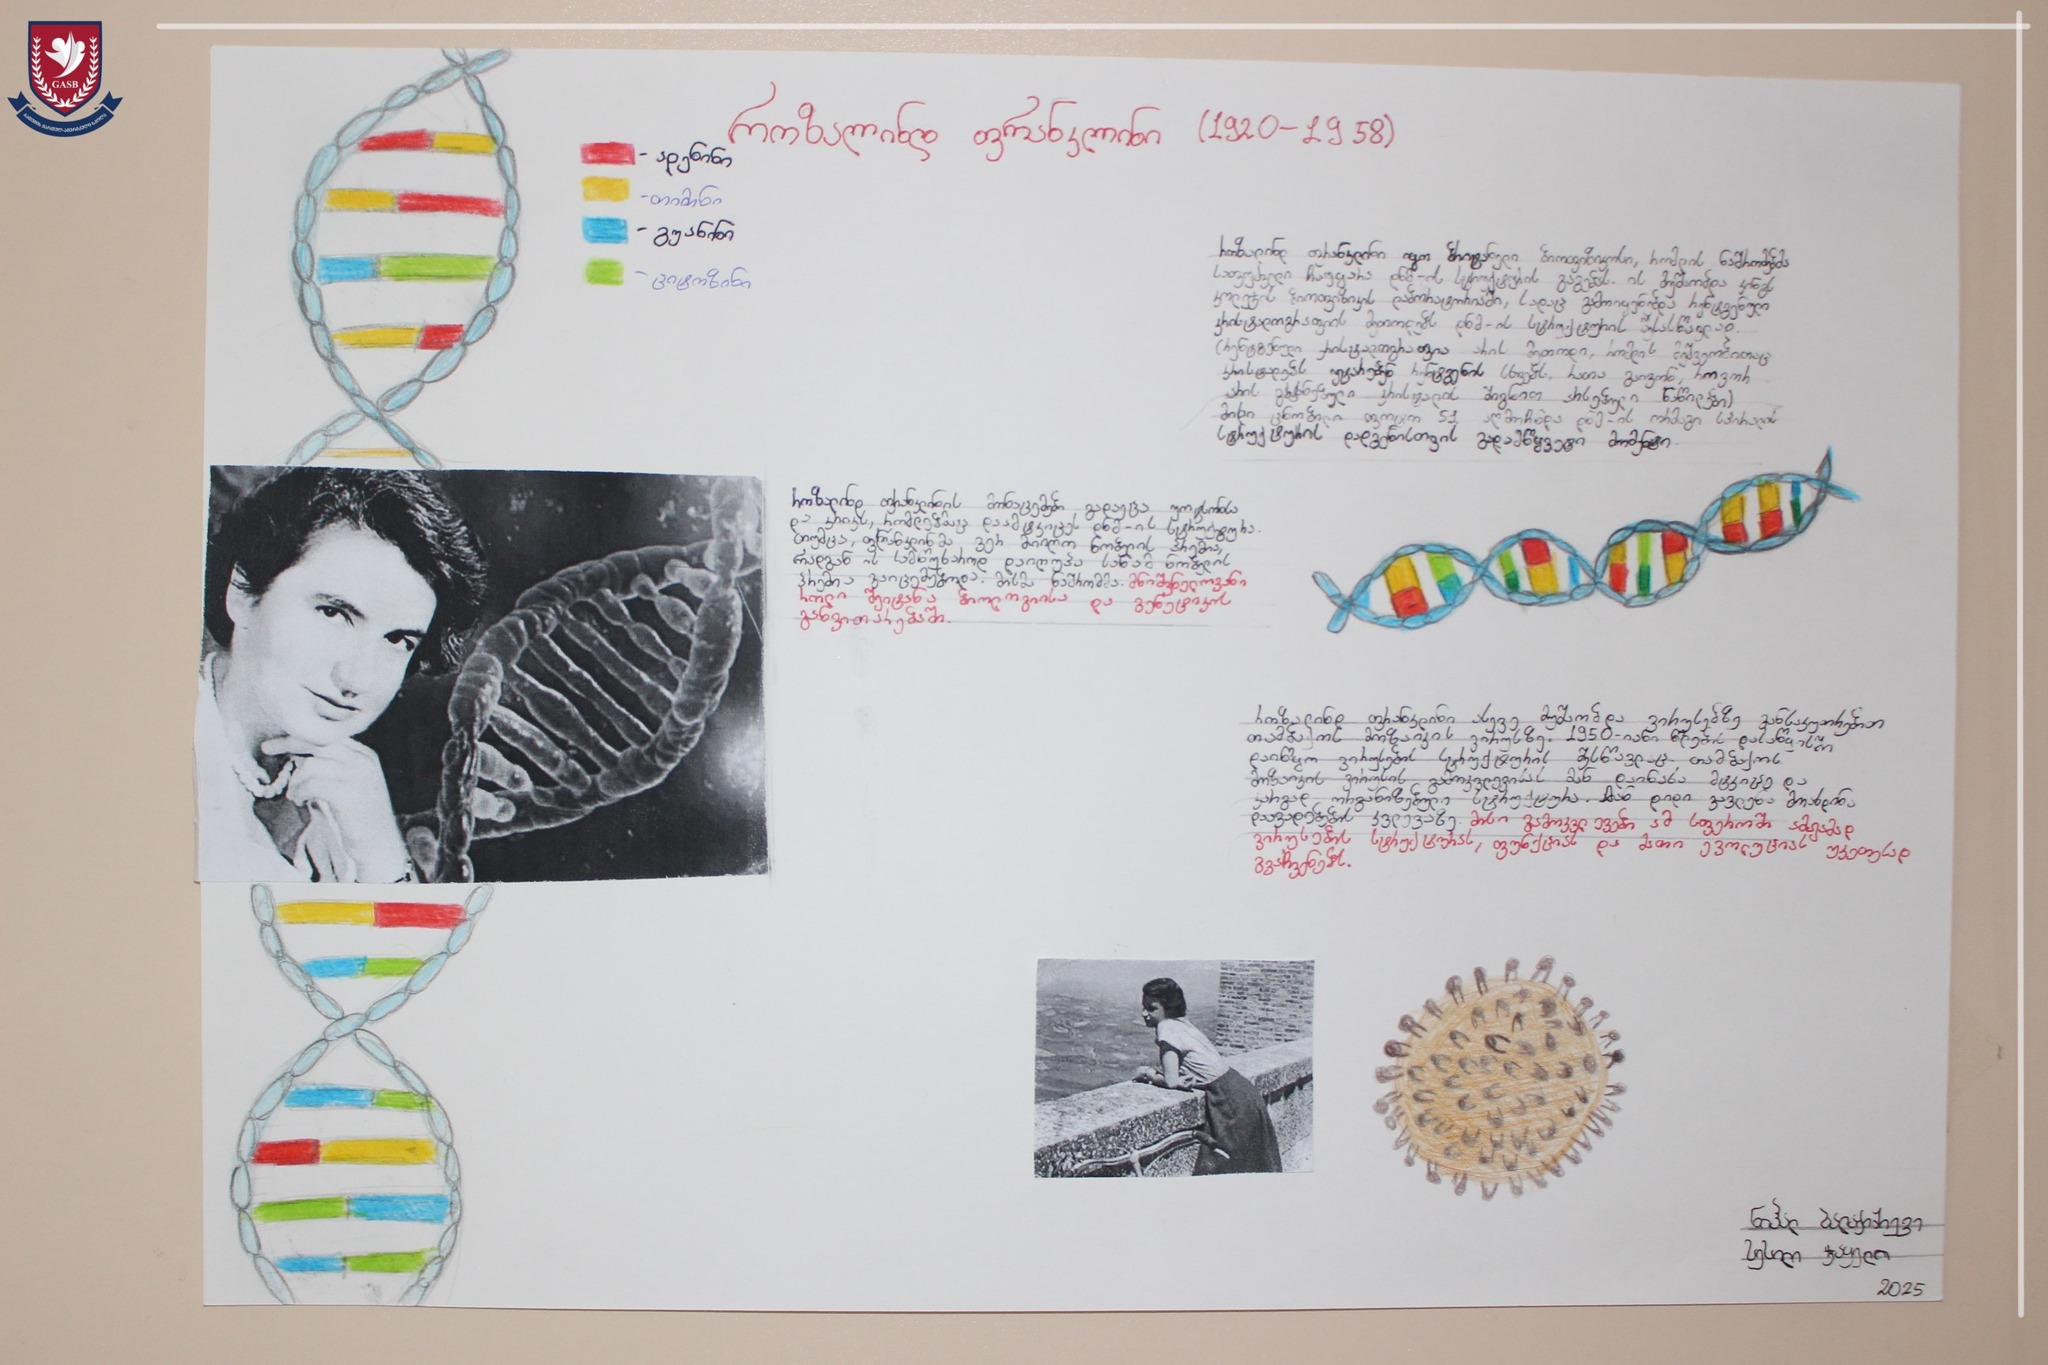 GASB
როზალინდ ფრანკლინი (1920-1958)
- ადენინი
- თიმინი
- გუანინი
- ციტოზინი
როზალინდ ფრანკლინი იყო ბრიტანელი ბიოფიზიკოსი, რომლის ნაშრომებმა
საფუძველი ჩაუყარა დნმ-ის სტრუქტურის გაგებას. ის მუშაობდა კინგს
კოლეჯის ბიოფიზიკის ლაბორატორიაში, სადაც გამოიყენებდა რენტგენულ
კრისტალოგრაფიის მეთოდებს დნმ-ის სტრუქტურის შესასწავლად.
(რენტგენული კრისტალოგრაფია არის მეთოდი, რომლის მეშვეობითაც
კრისტალებს უტარებენ რენტგენის სხივებს, რათა გაიგონ, როგორ
არის განლაგებული კრისტალის შიგნით არსებული ნაწილები)
მისი ცნობილი ფოტო 51 აღმოჩნდა დნმ-ის ორმაგი სპირალის
სტრუქტურის დადგენისთვის გადამწყვეტი მომენტი.
როზალინდ ფრანკლინის მონაცემები გადაეცა უოტსონსა
და კრიკს, რომლებმაც დაამტკიცეს დნმ-ის სტრუქტურა.
თუმცა, ფრანკლინმა ვერ მიიღო ნობელის პრემია,
რადგან ის სამწუხაროდ დაიღუპა სანამ ნობელის
პრემია გაიცემებოდა. მისმა ნაშრომმა მნიშვნელოვანი
როლი შეიტანა ბიოლოგიისა და გენეტიკის
განვითარებაში.
როზალინდ ფრანკლინი ასევე მუშაობდა ვირუსებზე განსაკუთრებით
თამბაქოს მოზაიკის ვირუსზე. 1950-იანი წლების დასაწყისში
დაიწყო ვირუსების სტრუქტურის შესწავლაც. თამბაქოს
მოზაიკის ვირუსის გამოკვლევისას მან დაინახა მტკიცე და
კარგად ორგანიზებული სტრუქტურა. მან დიდი გავლენა მოახდინა
დაავადებების კვლევაზე. მისი გამოკვლევები ამ სფეროში ამჟამად
ვირუსების სტრუქტურას, ფუნქციას და მათი ევოლუციას უკეთესად
გვაჩვენებს.
2025